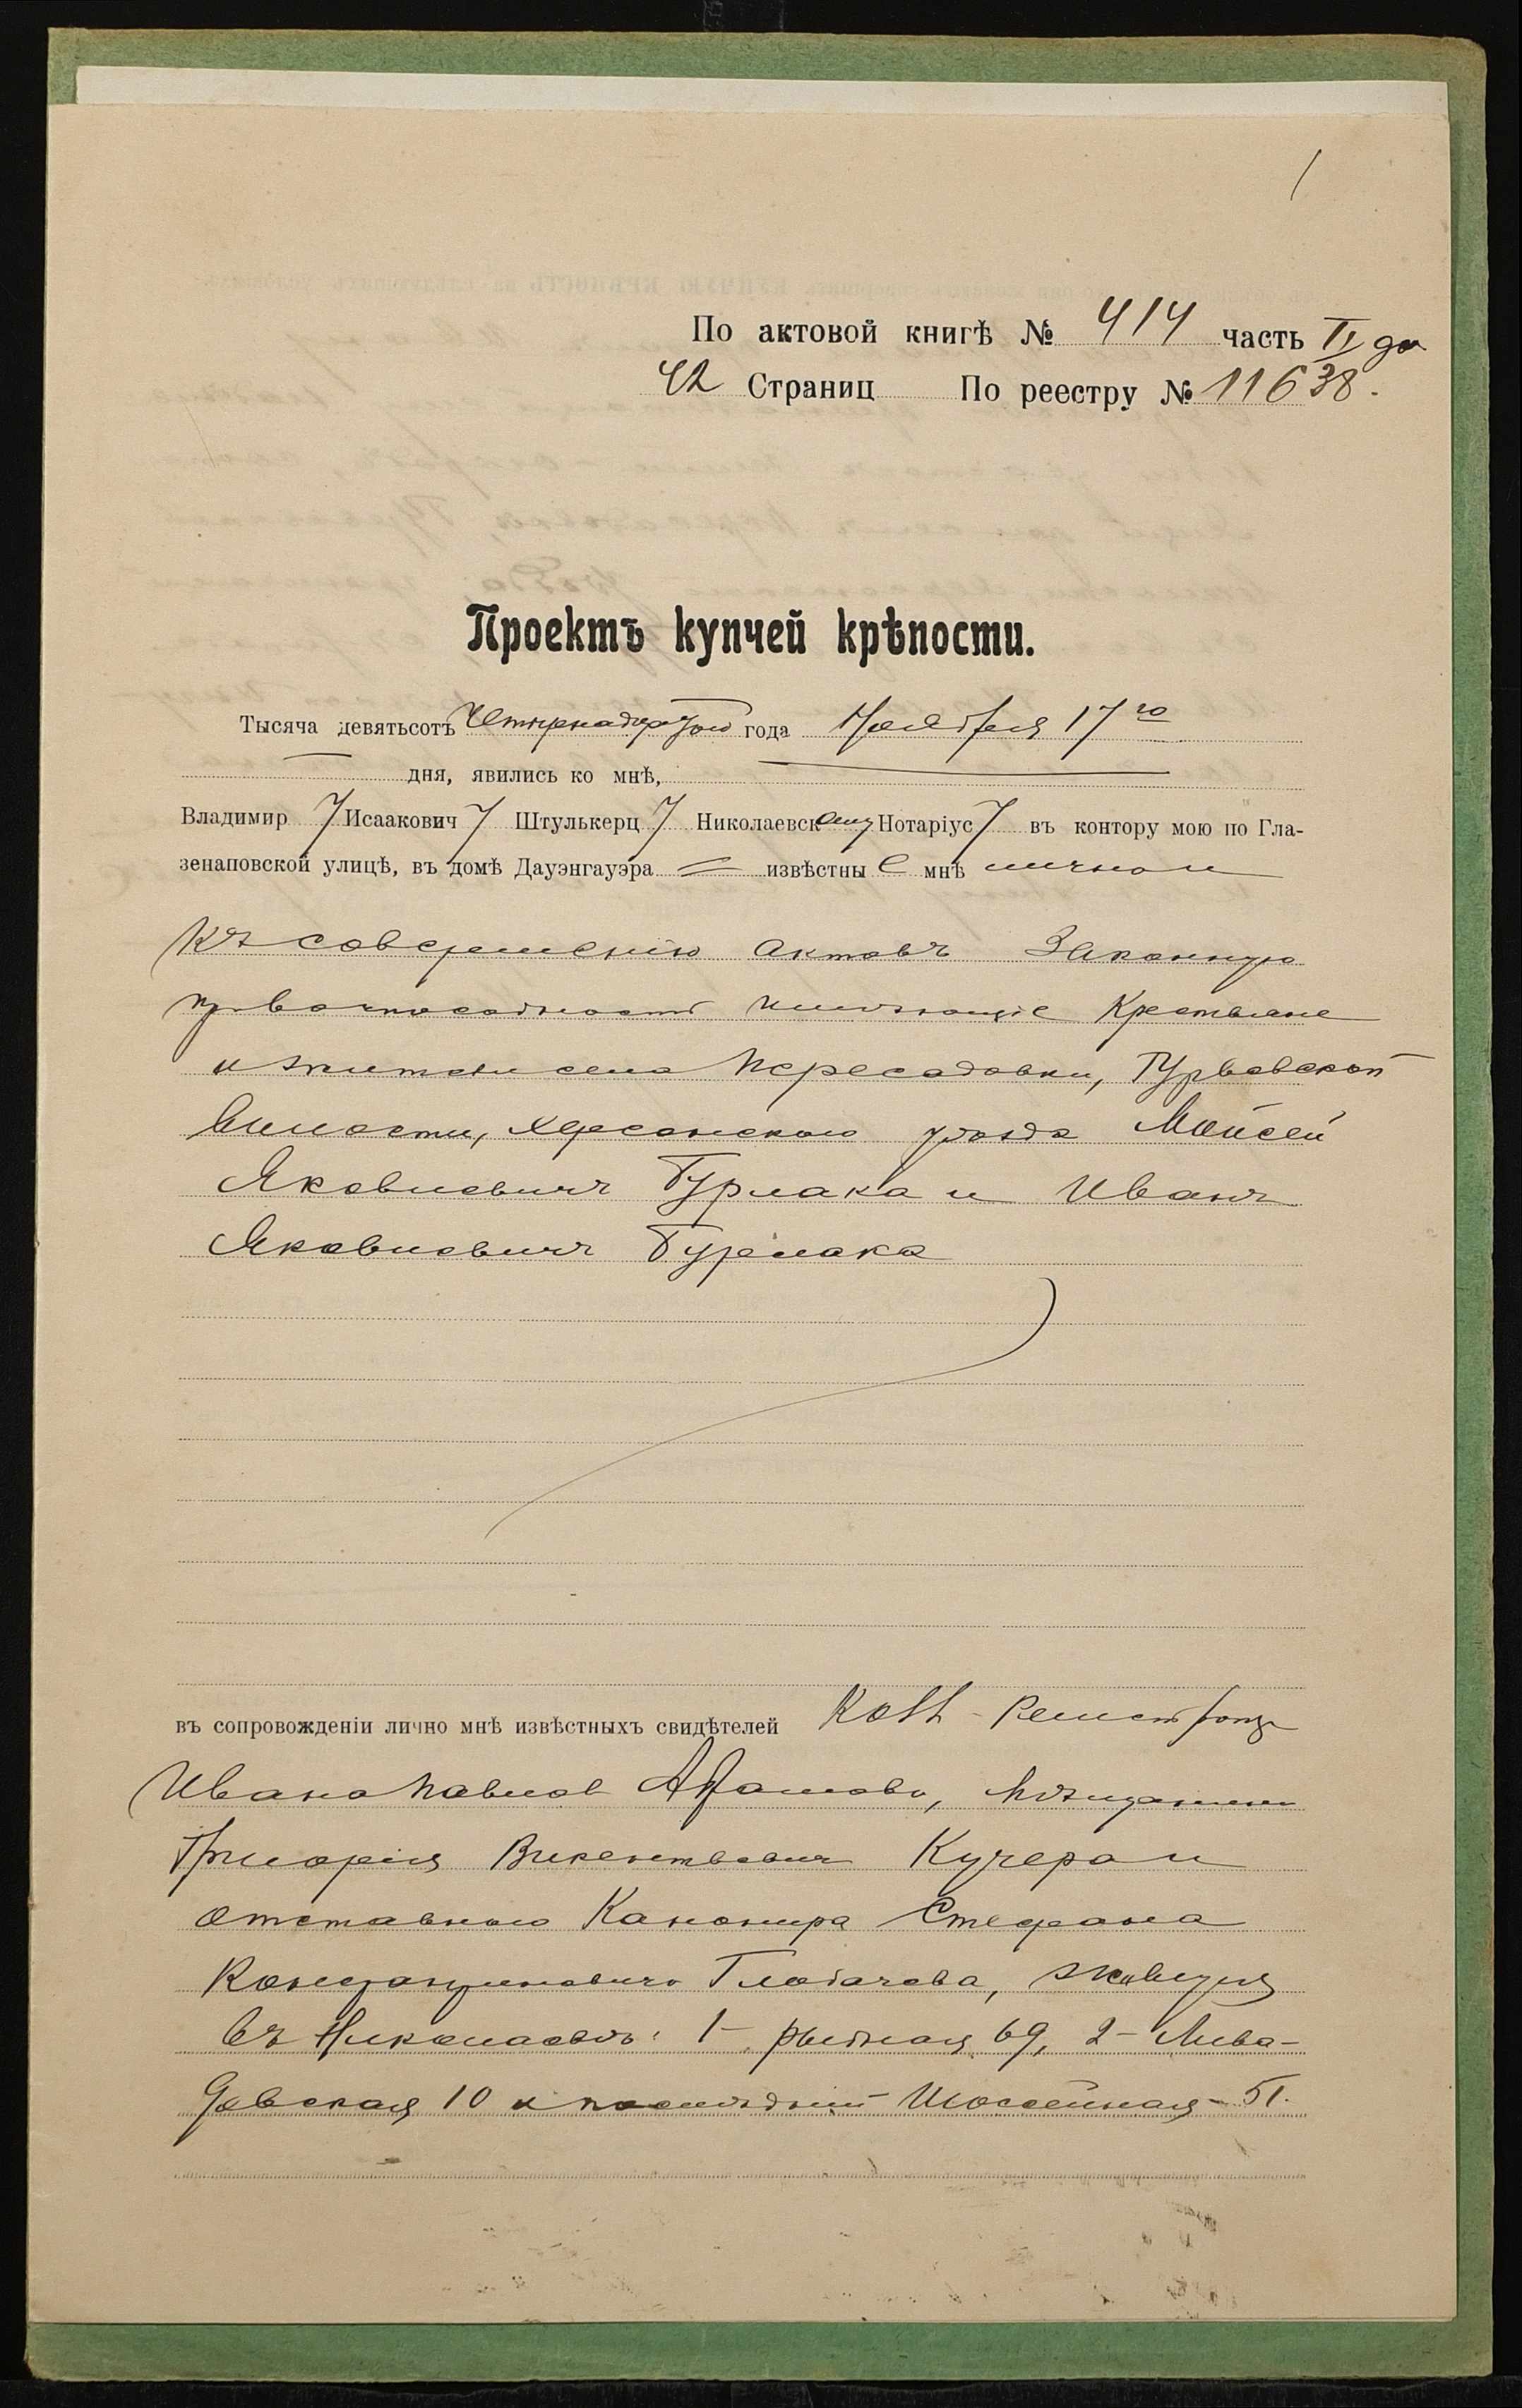 1
По актовой книгѣ № 414 часть II до
42 Страниц По реестру № 11638.
Проектъ купчей крѣпости.
Тысяча девятьсотъ Четырнадцатого года Ноября 17го
дня, явились ко мнѣ,
Владимир Исаакович Штулькерц Николаевскому Нотаріус въ контору мою по Гла-
зенаповской улицѣ, въ домѣ Дауэнгауэра извѣстные мнѣ лично и
къ совершенію актовъ законную
правоспособность имѣющіе крестьяне
и жители села Пересадовки, Гурьевской
волости, Херсонского уѣзда Моисей
Яковлевичъ Бурлака и Иванъ
Яковлевичъ Бурлака
въ сопровожденіи лично мнѣ извѣстныхъ свидѣтелей Колл-Регистратора
Ивана Павлов, мѣщанина
Григорія Викентьевича Кучера и
отставного Канонира Стефана
Константиновича Глобачева, живущія
въ Николаевѣ: 1- рыбная 69, 2- Лива-
довская 10 и послѣдній Шоссейная- 51.